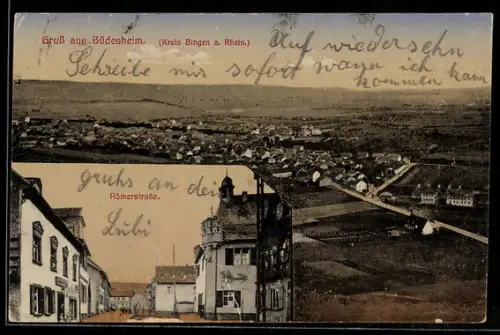 Gruß aus Büdesheim. (Kreis Bingen a. Rhein.)
Auf wiedersehn
Schreibe mir sofort wann ich kommen kann
gruhs an dei
Römerstraße.
Lübi